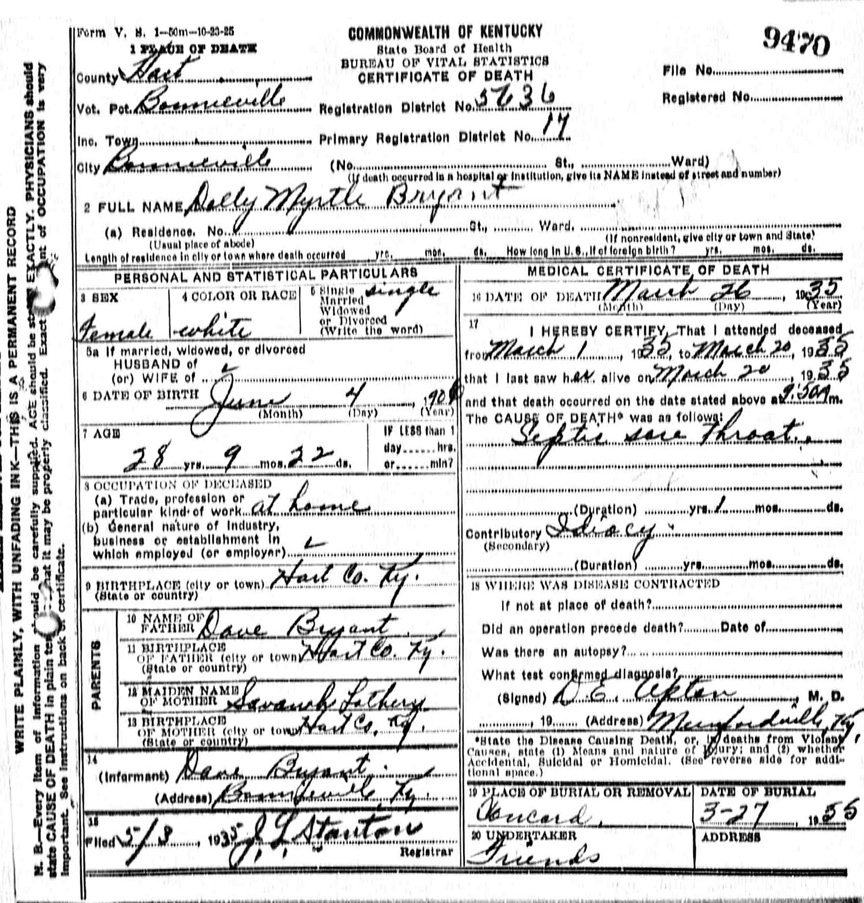 Form V. S. 1—50m—10-23-25
COMMONWEALTH OF KENTUCKY
State Board of Health
BUREAU OF VITAL STATISTICS
CERTIFICATE OF DEATH
9470
1 PLACE OF DEATH
County Hart
File No.
Vot. Pct. Bonnieville
Registration District No. 5636
Registered No.
Inc. Town
Primary Registration District No. 17
City Bonnieville (No. St., Ward)
(If death occurred in a hospital or institution, give its NAME instead of street and number)
2 FULL NAME Dolly Myrtle Bryant
(a) Residence. No. St., Ward.
(Usual place of abode) (If nonresident, give city or town and State)
Length of residence in city or town where death occurred yrs. mos. ds. How long in U. S., if of foreign birth? yrs. mos. ds.
PERSONAL AND STATISTICAL PARTICULARS
3 SEX Female
4 COLOR OR RACE white
5 Single Married Widowed or Divorced (Write the word) single
5a If married, widowed, or divorced
HUSBAND of
(or) WIFE of
6 DATE OF BIRTH June 4, 1906
(Month) (Day) (Year)
7 AGE
28 yrs. 9 mos. 22 ds.
IF LESS than 1
day hrs.
or min?
8 OCCUPATION OF DECEASED
(a) Trade, profession or
particular kind of work at home
(b) General nature of Industry,
business or establishment in
which employed (or employer)
9 BIRTHPLACE (city or town) Hart Co. Ky.
(State or country)
PARENTS
10 NAME OF FATHER Dave Bryant
11 BIRTHPLACE OF FATHER (city or town) Hart Co. Ky.
(State or country)
12 MAIDEN NAME OF MOTHER Savanah
13 BIRTHPLACE OF MOTHER (city or town) Hart Co. Ky.
(State or country)
14
(Informant) Dave Bryant
(Address) Bonnieville, Ky.
15
Filed 5/3, 1935 J. L. Stanton
Registrar
MEDICAL CERTIFICATE OF DEATH
16 DATE OF DEATH March 26, 1935
(Month) (Day) (Year)
17
I HEREBY CERTIFY, That I attended deceased
from March 1, 1935 to March 20, 1935
that I last saw her alive on March 20 1935
and that death occurred on the date stated above at m.
The CAUSE OF DEATH* was as follows:
Septic sore throat.
(Duration) yrs. 1 mos. ds.
Contributory Idiocy.
(Secondary)
(Duration) yrs. mos. ds.
18 WHERE WAS DISEASE CONTRACTED
If not at place of death?
Did an operation precede death? Date of
Was there an autopsy?
What test confirmed diagnosis?
(Signed) D. E. Upton, M. D.
, 19 (Address) Munfordville, Ky.
*State the Disease Causing Death, or, in deaths from Violent
Causes, state (1) Means and nature of Injury; and (2) whether
Accidental, Suicidal or Homicidal. (See reverse side for addi-
tional space.)
19 PLACE OF BURIAL OR REMOVAL
Concord.
DATE OF BURIAL
3-27 1935
20 UNDERTAKER
Friends
ADDRESS
WRITE PLAINLY, WITH UNFADING INK—THIS IS A PERMANENT RECORD
N. B.—Every item of information should be carefully supplied. AGE should be EXACTLY. PHYSICIANS should
state CAUSE OF DEATH in plain that it may be properly classified. Exact of OCCUPATION is very
important. See instructions on back of certificate.